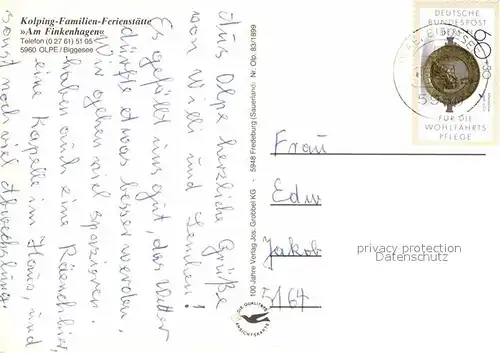 Kolping-Familien-Ferienstätte
»Am Finkenhagen«
Telefon (0 27 61) 51 05
5960 OLPE / Biggesee
Aus Olpe herzliche Grüße
von Willi und
gefällt uns gut, das Wetter
dürfte etwas besser werden,
Wir gehen viel spazieren.
haben auch eine
eine Kapelle im Haus, und
sonst noch viel Abwechslung.
100 Jahre Verlag Jos. Grobbel KG · 5948 Fredeburg (Sauerland) · Nr. Olp. 83/1899
DIE QUALITÄTS
ANSICHTSKARTE
DEUTSCHE
BUNDESPOST
60+30
FÜR DIE
WOHLFAHRTS
PFLEGE
Frau
Jakob
5164
privacy protection
Datenschutz